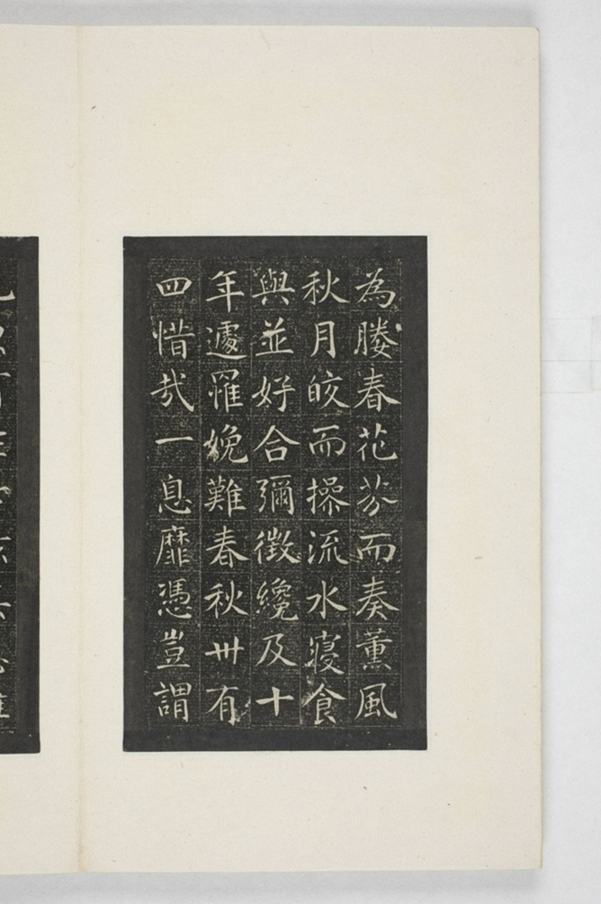 為媵春花芬而奏薰風
秋月皎而操流水寢食
與並好合彌徵纔及十
年遽罹娩難春秋卌有
四惜哉一息靡憑豈謂